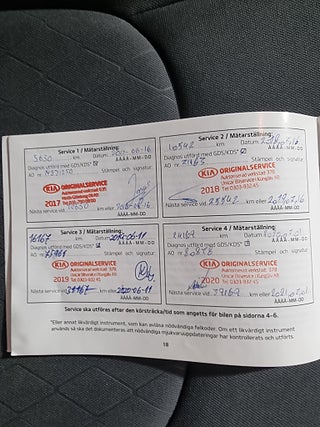 Service 1 / Mätarställning:
km Datum
ÅÅÅÅ-MM-DD
Diagnos utförd med GDS/KDS*
AO nr.
Stämpel och signatur:
KIA ORIGINALSERVICE
2017
Nästa service vid km eller
ÅÅÅÅ-MM-DD
Service 2 / Mätarställning:
km Datum
ÅÅÅÅ-MM-DD
Diagnos utförd med GDS/KDS*
AO nr.
Stämpel och signatur:
KIA ORIGINALSERVICE
Auktoriserad verkstad: 378
Unicar Bilservice i Kungälv AB
2018 Tel: 0303-932 45
Nästa service vid 25542 km eller
ÅÅÅÅ-MM-DD
Service 3 / Mätarställning:
16167 km Datum
ÅÅÅÅ-MM-DD
Diagnos utförd med GDS/KDS*
AO nr.
Stämpel och signatur:
KIA ORIGINALSERVICE
Auktoriserad verkstad: 378
Unicar Bilservice i Kungälv AB
2019 Tel: 0303-932 45
Nästa service vid km eller 2020-06-11
ÅÅÅÅ-MM-DD
Service 4 / Mätarställning:
24169 km Datum
ÅÅÅÅ-MM-DD
Diagnos utförd med GDS/KDS*
AO nr.
Stämpel och signatur:
KIA ORIGINALSERVICE
Auktoriserad verkstad: 378
Unicar Bilservice i Kungälv AB
2020 Tel: 0303-932 45
Nästa service vid 39169 km eller 2021-07-01
ÅÅÅÅ-MM-DD
Service ska utföras efter den körsträcka/tid som angetts för bilen på sidorna 4-6.
*Eller annat likvärdigt instrument, som kan avläsa nödvändiga felkoder. Om ett likvärdigt instrument
används så ska det dokumenteras att nödvändiga mjukvaruuppdateringar har kontrollerats och utförts.
18